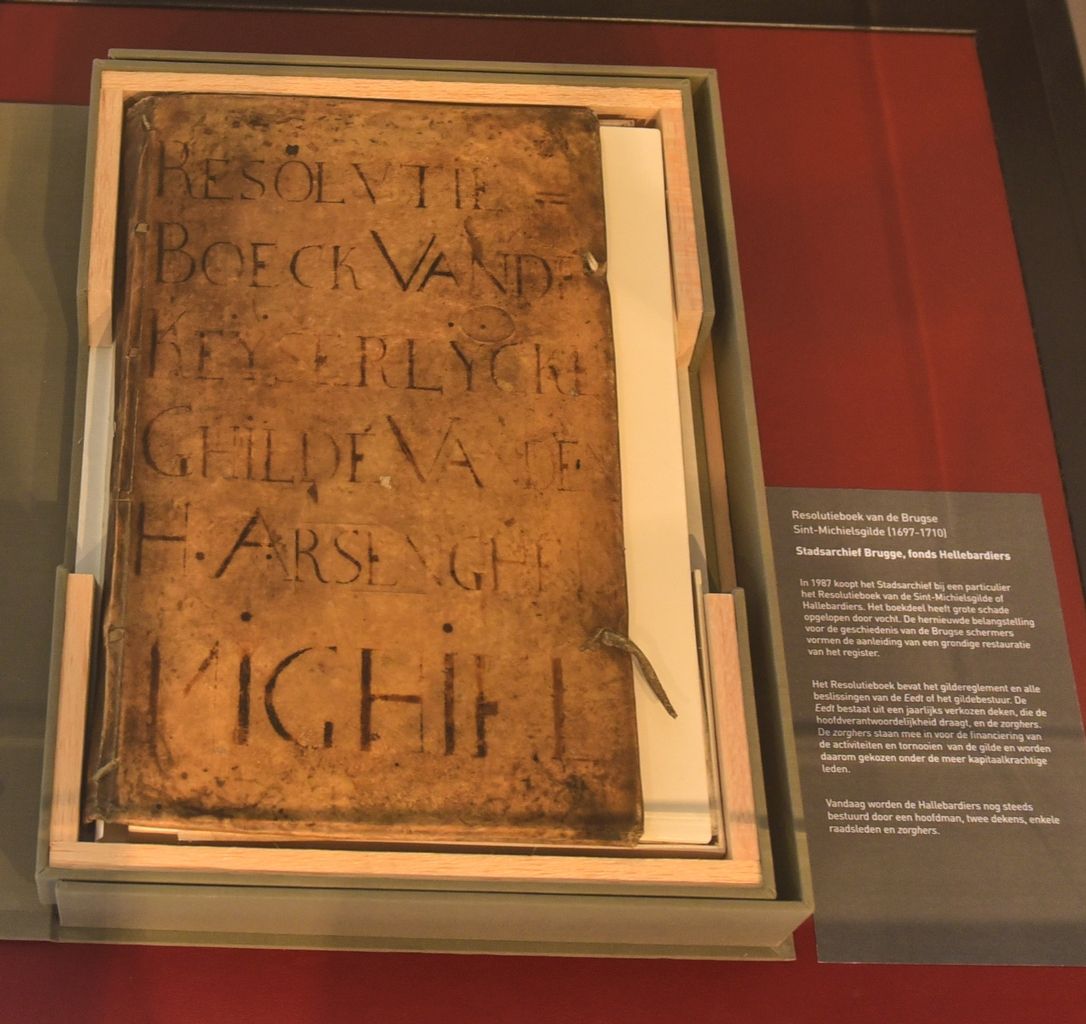 RESOLVTIE =
BOECK VANDE
KEYSERLYCKE
GHILDE VANDEN
H. ARSENGHEL
MIGHIEL
Resolutieboek van de Brugse
Sint-Michielsgilde (1697-1710)
Stadsarchief Brugge, fonds Hellebardiers
In 1987 koopt het Stadsarchief bij een particulier
het Resolutieboek van de Sint-Michielsgilde of
Hallebardiers. Het boekdeel heeft grote schade
opgelopen door vocht. De hernieuwde belangstelling
voor de geschiedenis van de Brugse schermers
vormen de aanleiding van een grondige restauratie
van het register.
Het Resolutieboek bevat het gildereglement en alle
beslissingen van de Eedt of het gildebestuur. De
Eedt bestaat uit een jaarlijks verkozen deken, die de
hoofdverantwoordelijkheid draagt, en de zorghers.
De zorghers staan mee in voor de financiering van
de activiteiten en tornooien van de gilde en worden
daarom gekozen onder de meer kapitaalkrachtige
leden.
Vandaag worden de Hallebardiers nog steeds
bestuurd door een hoofdman, twee dekens, enkele
raadsleden en zorghers.